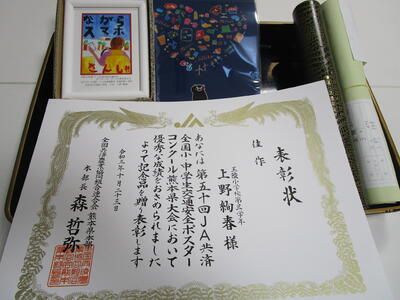 表彰状
佳作
上野絢春様
あなたは第五十回JA共済
全国小・中学生交通安全ポスター
コンクール熊本県大会において
優秀な成績をおさめられました
よって記念品を贈り表彰します
令和三年十月二十三日
全国共済農業協同組合連合会 熊本県本部
本部長 森哲弥
ながらスマホ